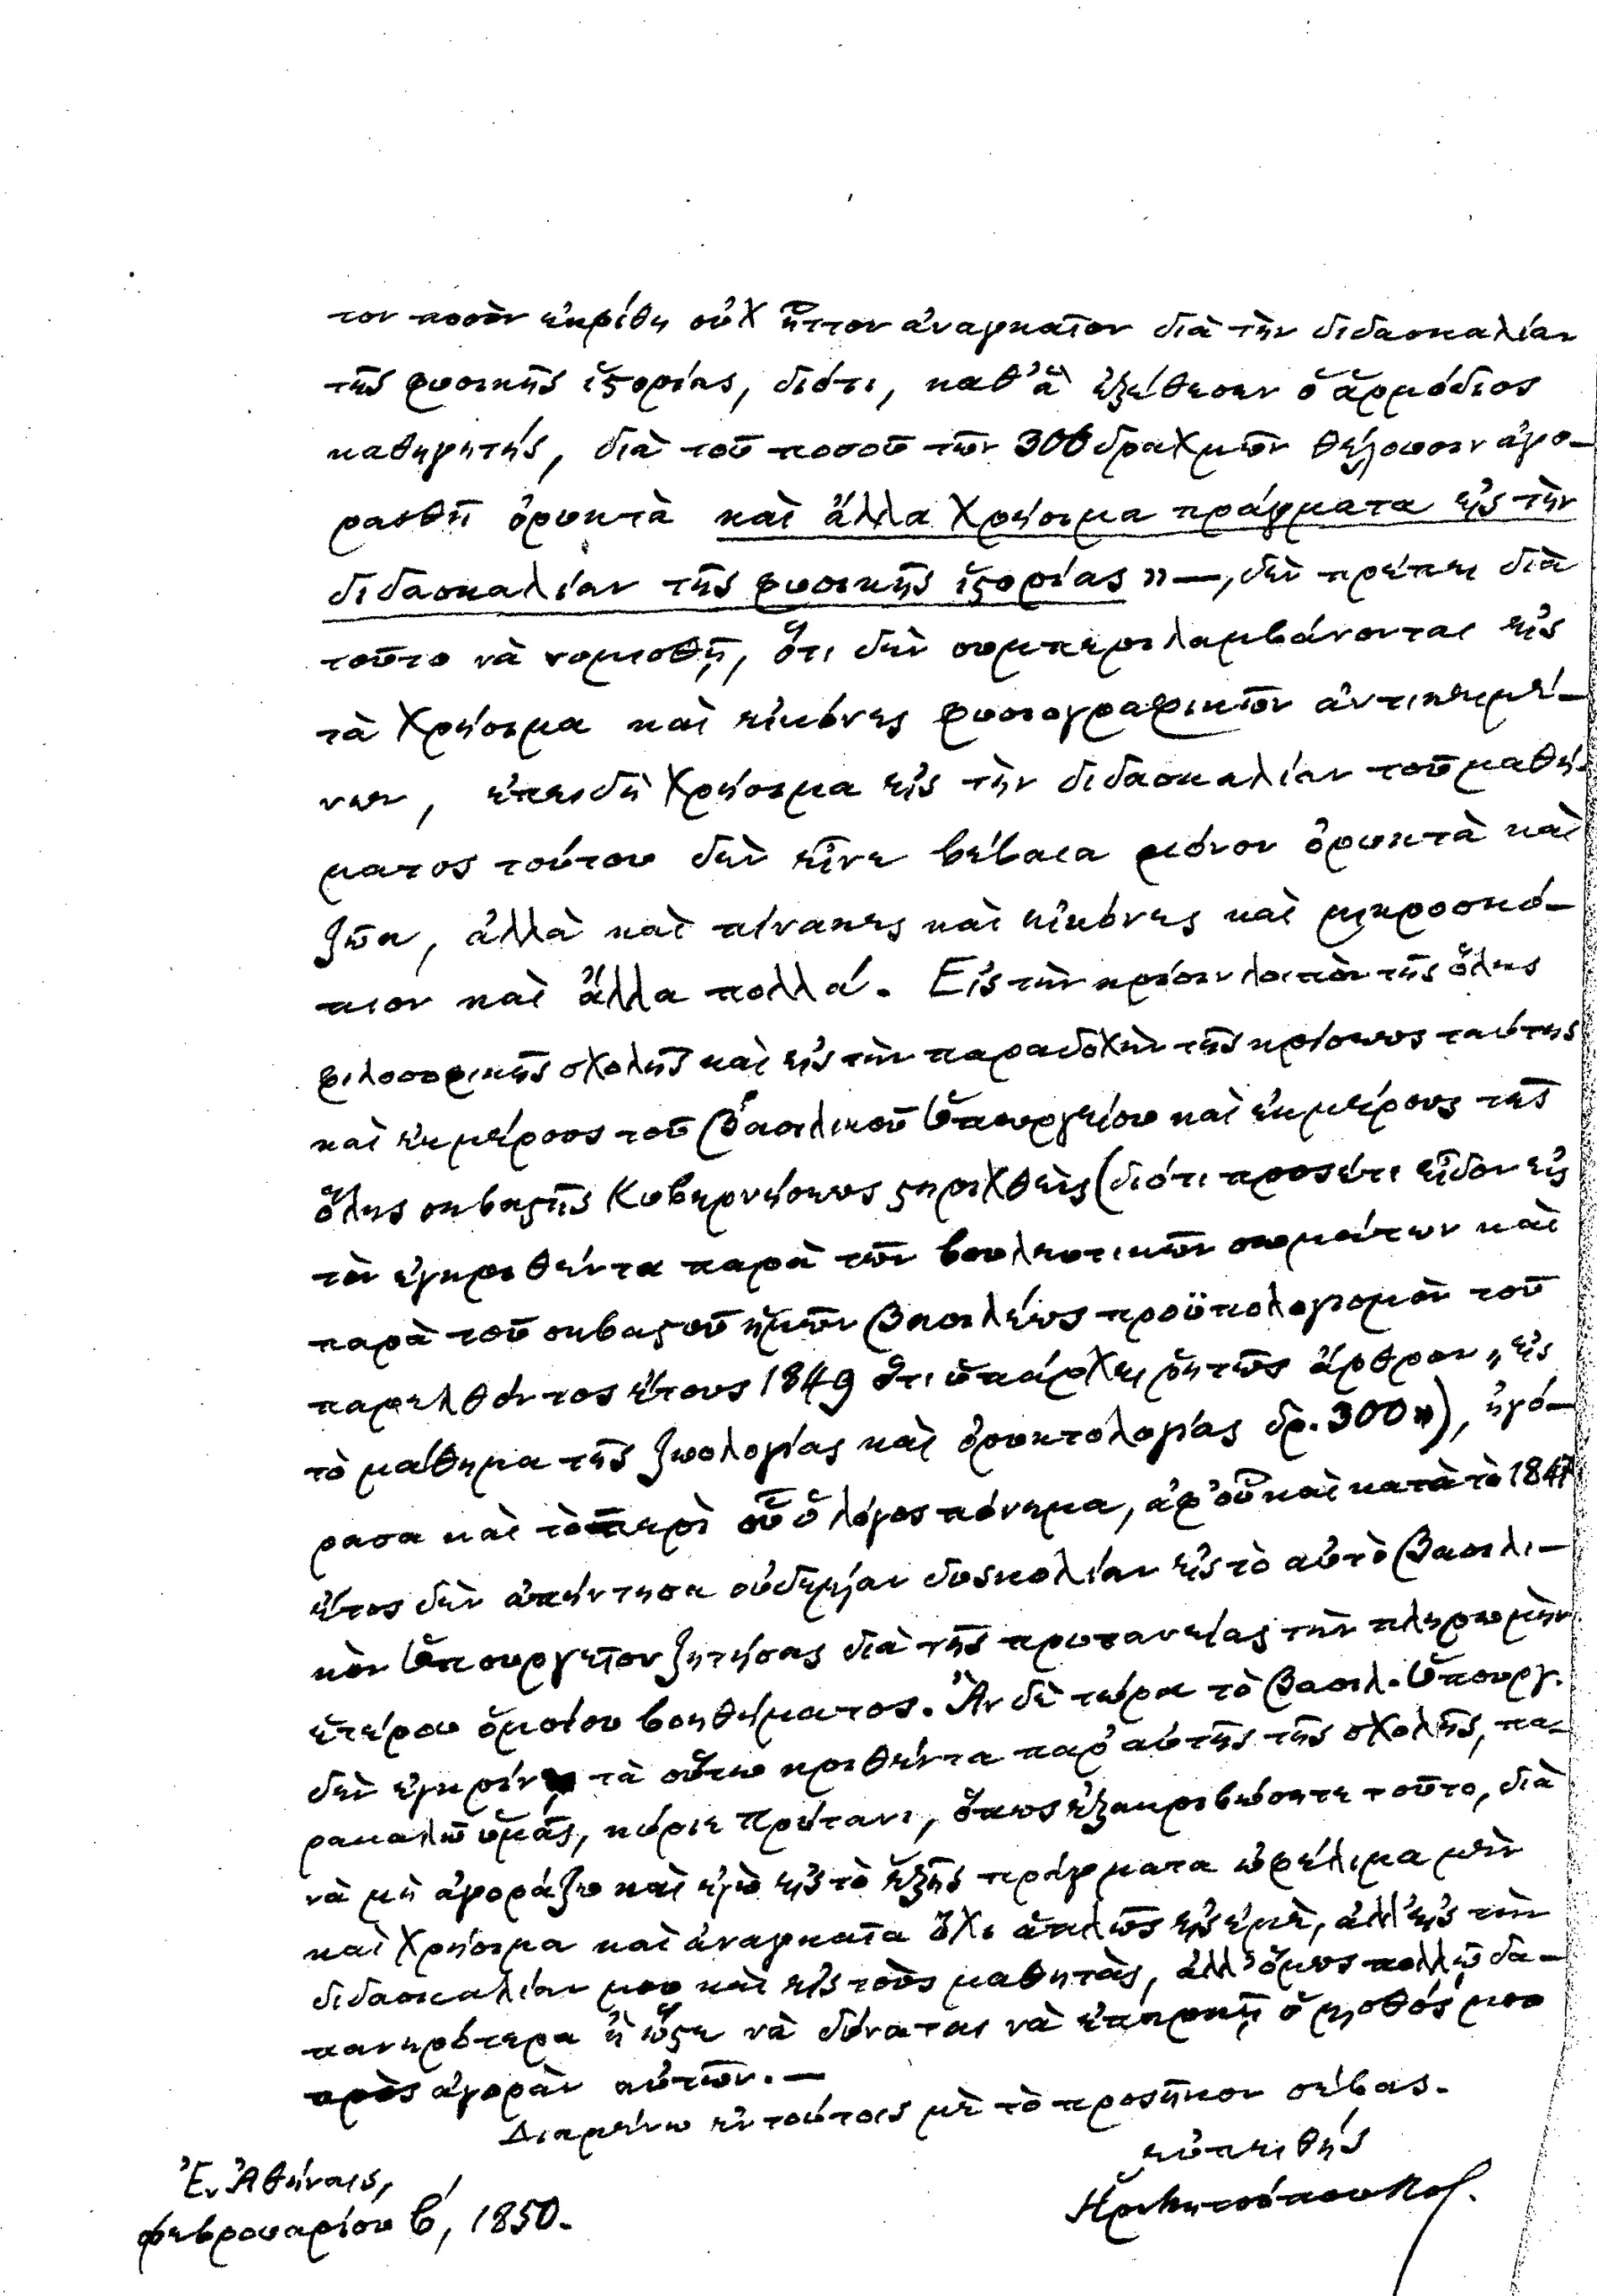 τον ποσὸν ἐκρίθη οὐχ ἧττον ἀναγκαῖον διὰ τὴν διδασκαλίαν
τῆς φυσικῆς ἱςορίας, διότι, καθ’ ἃ ἐξέθεσεν ὁ ἁρμόδιος
καθηγητής, διὰ τοῦ ποσοῦ τῶν 300 δραχμῶν θέλουσιν ἀγο-
ρασθῆ ὀρυκτὰ καὶ ἄλλα χρήσιμα πράγματα εἰς τὴν
διδασκαλίαν τῆς φυσικῆς ἱςορίας» —, δὲν πρέπει διὰ
τοῦτο νὰ νομισθῇ, ὅτι δὲν συμπεριλαμβάνονται εἰς
τὰ χρήσιμα καὶ εἰκόνες φυσιογραφικῶν ἀντικειμέ-
νων, ἐπειδὴ χρήσιμα εἰς τὴν διδασκαλίαν τοῦ μαθή-
ματος τούτου δὲν εἶνε βέβαια μόνον ὀρυκτὰ καὶ
ζῶα, ἀλλὰ καὶ πίνακες καὶ εἰκόνες καὶ μικροσκό-
πιον καὶ ἄλλα πολλά. Εἰς τὴν κρίσιν λοιπὸν τῆς ὅλης
φιλοσοφικῆς σχολῆς καὶ εἰς τὴν παραδοχὴν τῆς κρίσεως ταύτης
καὶ ἐκ μέρους τοῦ Βασιλικοῦ Ὑπουργείου καὶ ἐκ μέρους τῆς
ὅλης σεβαςῆς Κυβερνήσεως ςηριχθεὶς (διότι προσέτι εἶδον εἰς
τὸν ἐγκριθέντα παρὰ τῶν βουλευτικῶν σωμάτων καὶ
παρὰ τοῦ σεβαςοῦ ἡμῶν Βασιλέως προϋπολογισμὸν τοῦ
παρελθόντος ἔτους 1849 ὅτι ὑπάρχει ῥητῶς ἄρθρον „εἰς
τὸ μάθημα τῆς ζωολογίας καὶ ὀρυκτολογίας δρ. 300»), ἠγό-
ρασα καὶ τὸ περὶ οὗ ὁ λόγος πόνημα, ἀφ’ οὗ καὶ κατὰ τὸ 1847
ἔτος δὲν ἀπήντησα οὐδεμίαν δυσκολίαν εἰς τὸ αὐτὸ Βασιλι-
κὸν Ὑπουργεῖον ζητήσας διὰ τῆς πρυτανείας τὴν πληρωμὴν
ἑτέρου ὁμοίου βοηθήματος. Ἂν δὲ τώρα τὸ Βασιλ. Ὑπουργ.
δὲν ἐγκρίνῃ τὰ οὕτω κριθέντα παρ’ αὐτῆς τῆς σχολῆς, πα-
ρακαλῶ ὑμᾶς, κύριε Πρύτανι, ὅπως ἐξακριβώσητε τοῦτο, διὰ
νὰ μὴ ἀγοράζω καὶ ἐγὼ εἰς τὸ ἑξῆς πράγματα ὠφέλιμα μὲν
καὶ χρήσιμα καὶ ἀναγκαῖα ὄχι ἁπλῶς εἰς ἐμὲ, ἀλλ’ εἰς τὴν
διδασκαλίαν μου καὶ εἰς τοὺς μαθητὰς, ἀλλ’ ὅμως πολλῷ δα-
πανηρότερα ἢ ὥςε νὰ δύναται νὰ ἐπαρκῇ ὁ μισθός μου
πρὸς ἀγορὰν αὐτῶν. —
Διαμένω ἐν τούτοις μὲ τὸ προσῆκον σέβας.
εὐπειθὴς
Ἐν Ἀθήναις,
φεβρουαρίου β´, 1850.